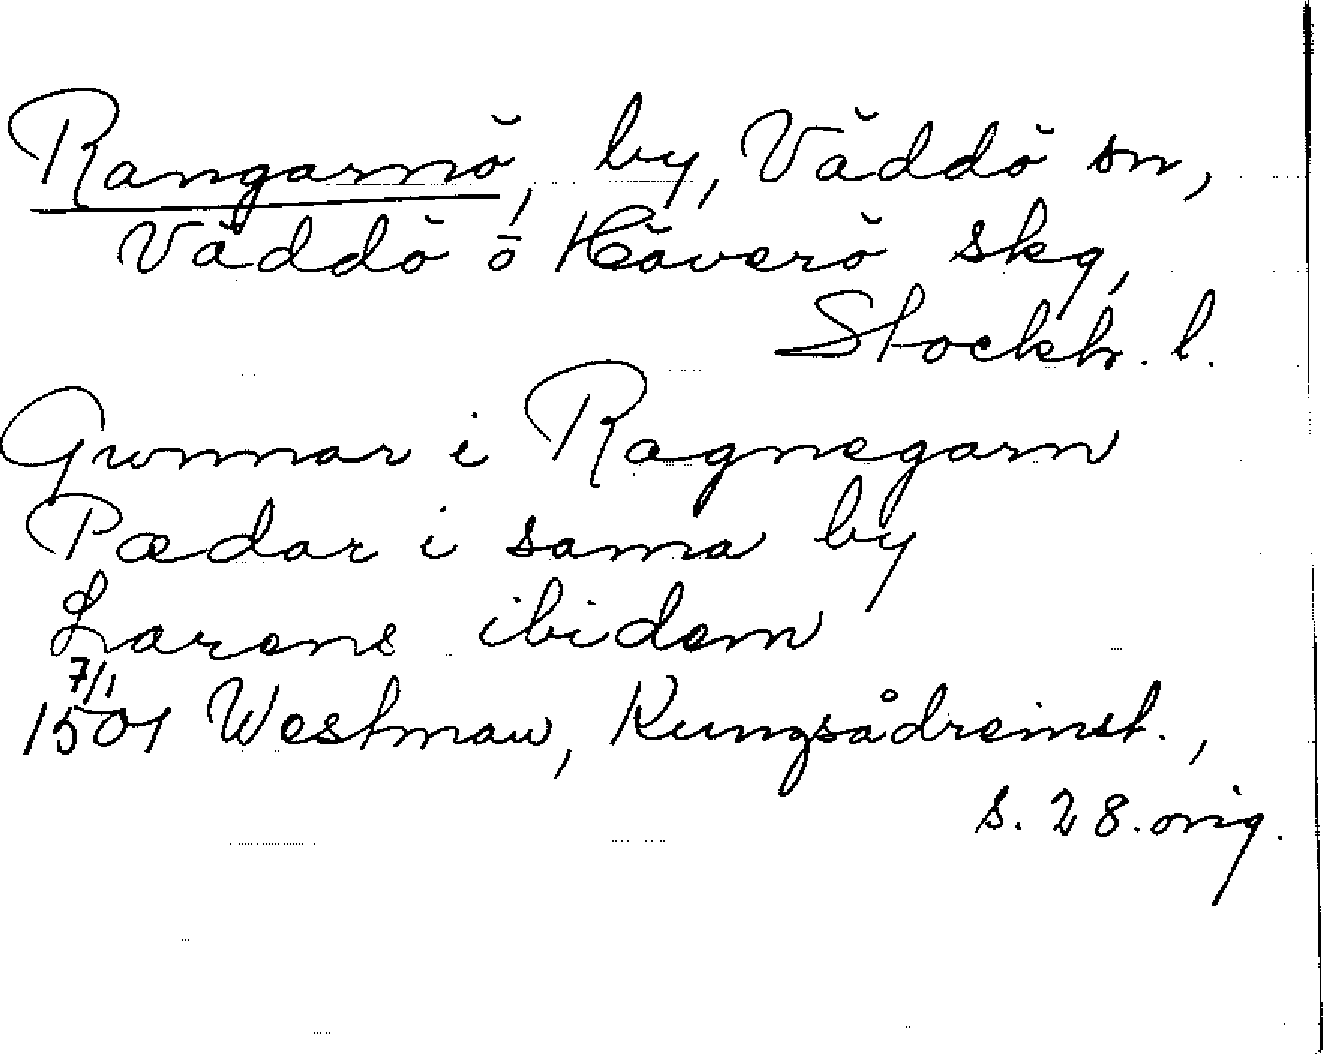 Rangarnö, by, Väddö sn,
Väddö o Häverö skg,
Stockh. l.
Gunnar i Ragnegarn
Pædar i sama by
Larens ibidem
7/1
1501 Westman, Kungsådreinst.,
s. 28. orig.